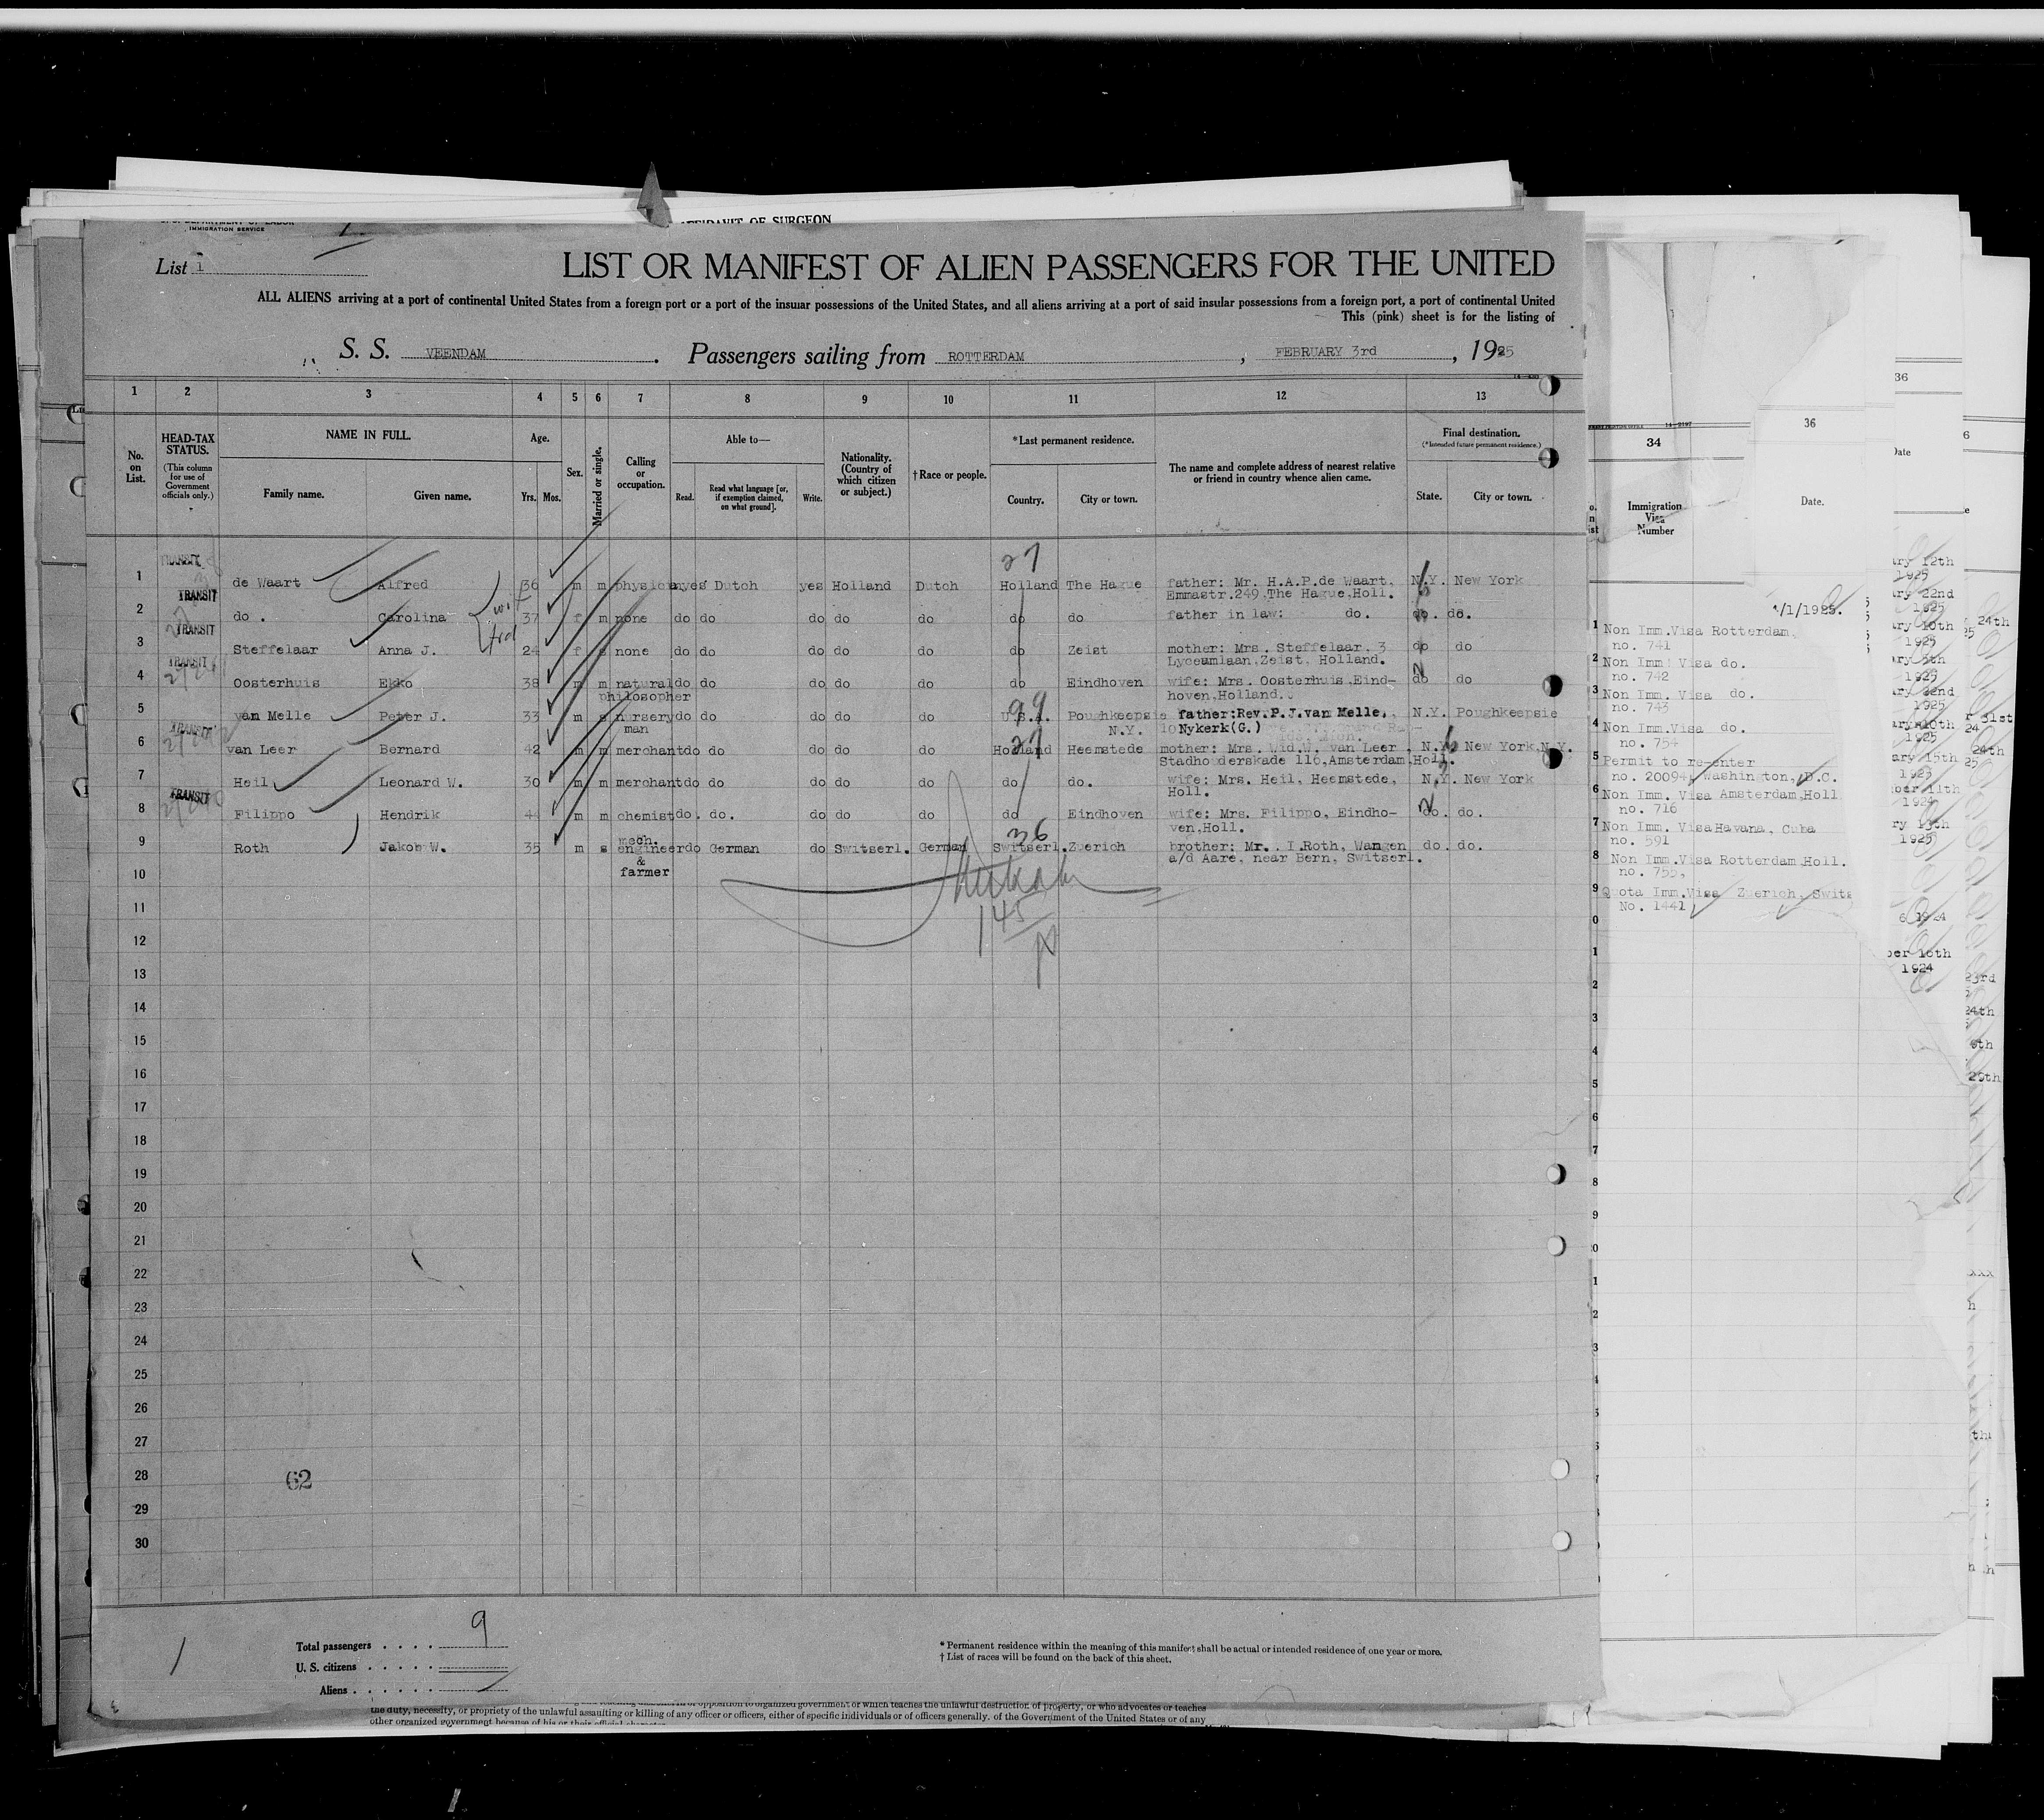 AFFIDAVIT OF SURGEON
U. S. DEPARTMENT OF LABOR
IMMIGRATION SERVICE
List 1
LIST OR MANIFEST OF ALIEN PASSENGERS FOR THE UNITED
ALL ALIENS arriving at a port of continental United States from a foreign port or a port of the insular possessions of the United States, and all aliens arriving at a port of said insular possessions from a foreign port, a port of continental United
This (pink) sheet is for the listing of
S. S. VEENDAM . Passengers sailing from ROTTERDAM , FEBRUARY 3rd , 1925
1 2 3 4 5 6 7 8 9 10 11 12 13
No. on List.
HEAD-TAX STATUS.
(This column for use of Government officials only.)
NAME IN FULL.
Family name. Given name.
Age.
Yrs. Mos.
Sex.
Married or single.
Calling or occupation.
Able to—
Read. Read what language [or, if exemption claimed, on what ground]. Write.
Nationality. (Country of which citizen or subject.)
† Race or people.
* Last permanent residence.
Country. City or town.
The name and complete address of nearest relative or friend in country whence alien came.
Final destination.
(* Intended future permanent residence.)
State. City or town.
27
TRANSIT
1 de Waart Alfred 36 m m physician yes Dutch yes Holland Dutch Holland The Hague father: Mr. H.A.P.de Waart, N.Y. New York
Emmastr.249,The Hague,Holl.
TRANSIT
2 do. Carolina 37 f m none do do do do do do do father in law: do. do. do.
TRANSIT
3 Steffelaar Anna J. 24 f s none do do do do do do Zeist mother: Mrs. Steffelaar, 3 do do
Lyceumlaan,Zeist, Holland.
TRANSIT
4 Oosterhuis Ekko 38 m m natural do do do do do do Eindhoven wife: Mrs. Oosterhuis,Eind- do do
philosopher hoven,Holland.
99
5 van Melle Peter J. 33 m s nursery do do do do do U.S.A. Poughkeepsie father:Rev.P.J.van Melle, N.Y. Poughkeepsie
man N.Y. Nykerk(G.)
TRANSIT 27
6 van Leer Bernard 42 m m merchant do do do do do Holland Heemstede mother: Mrs. Wid.W. van Leer, N.Y. New York,N.Y.
Stadhouderskade 116,Amsterdam,Holl.
7 Heil Leonard W. 30 m m merchant do do do do do do do. wife: Mrs. Heil, Heemstede, N.Y. New York
Holl.
TRANSIT
8 Filippo Hendrik 44 m m chemist do. do. do do do do Eindhoven wife: Mrs. Filippo, Eindho- do. do.
ven,Holl.
36
9 Roth Jakob W. 35 m s mech. engineer do German do Switserl. German Switserl. Zuerich brother: Mr. I.Roth, Wangen do. do.
& farmer a/d Aare, near Bern, Switserl.
145
10
11
12
13
14
15
16
17
18
19
20
21
22
23
24
25
26
27
28
29
30
62
Total passengers . . . . 9
U. S. citizens . . . . .
Aliens . . . . . .
* Permanent residence within the meaning of this manifest shall be actual or intended residence of one year or more.
† List of races will be found on the back of this sheet.
the duty, necessity, or propriety of the unlawful assaulting or killing of any officer or officers, either of specific individuals or of officers generally, of the Government of the United States or of any
34
Immigration Visa Number
1 Non Imm.Visa Rotterdam,
no. 741
2 Non Imm. Visa do.
no. 742
3 Non Imm. Visa do.
no. 743
4 Non Imm.Visa do.
no. 754
5 Permit to re-enter
no. 20094, Washington, D.C.
6 Non Imm. Visa Amsterdam,Holl
no. 716
7 Non Imm. Visa Havana, Cuba
no. 591
8 Non Imm.Visa Rotterdam,Holl.
no. 755,
9 Quota Imm.Visa Zuerich, Swits
No. 1441
36
Date.
1/1/1925.
36
Date